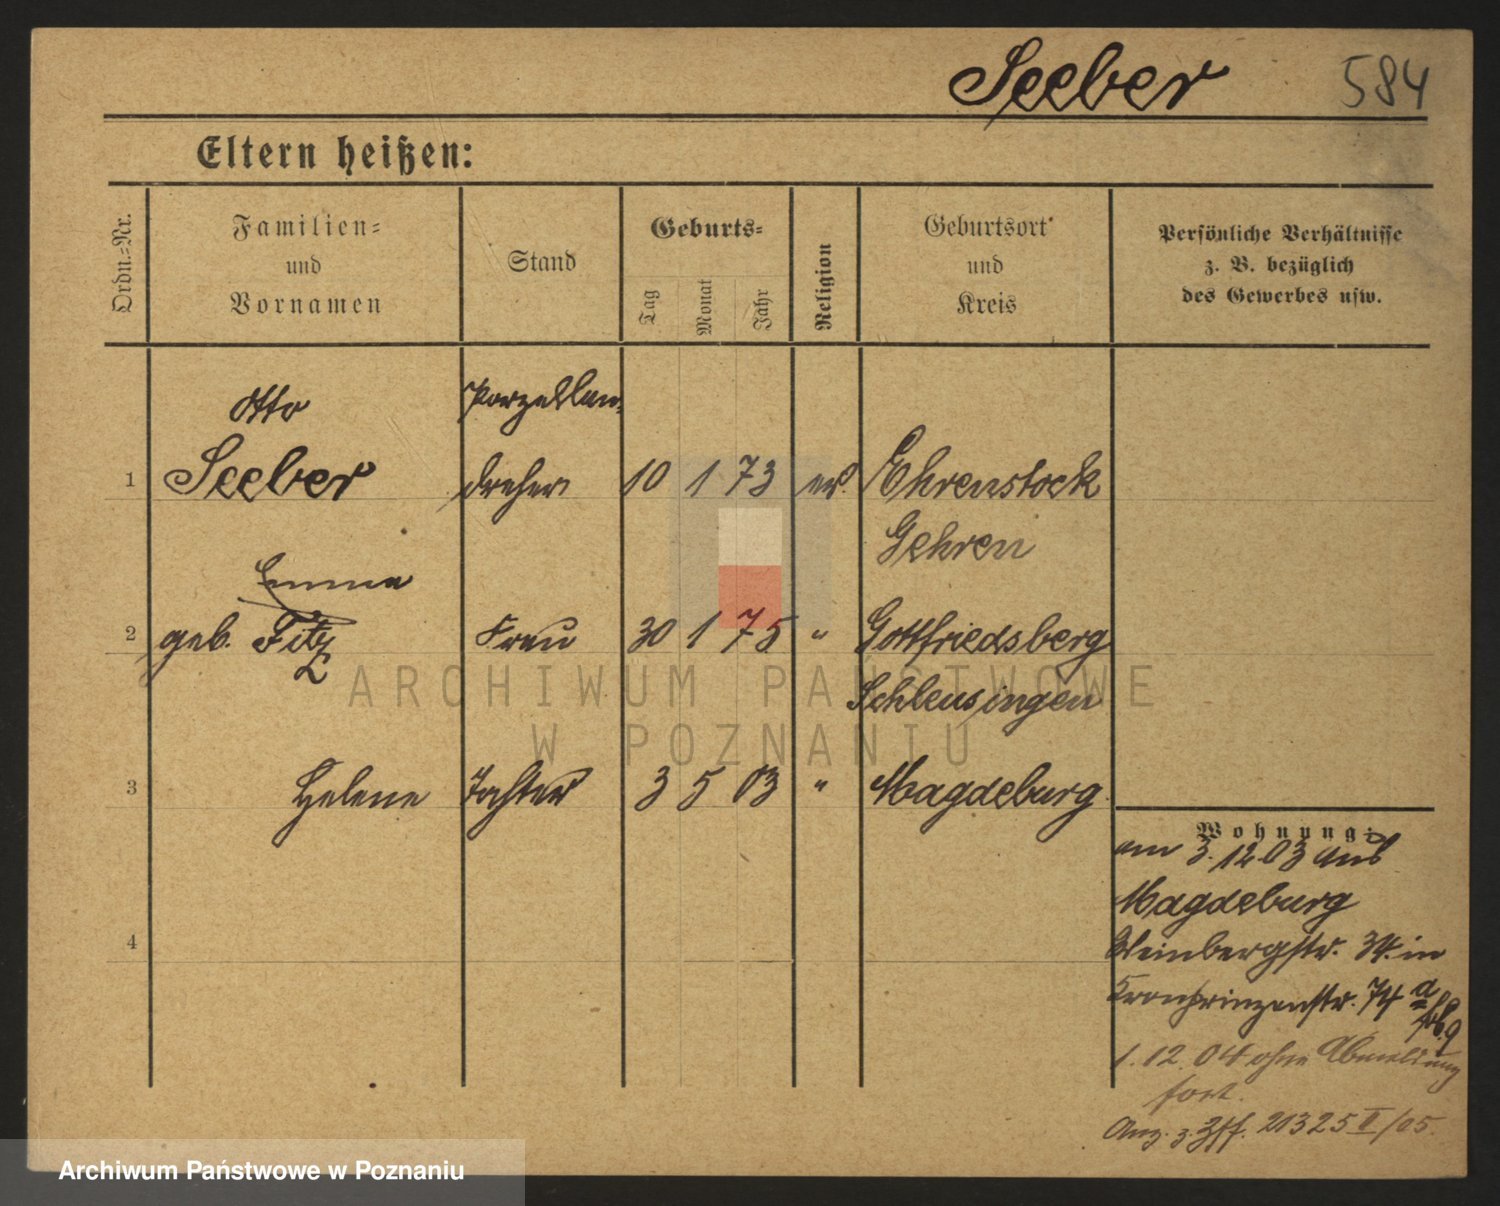 Seeber 584
Eltern heißen:
Ordn.=Nr.
Familien=
und
Vornamen
Stand
Geburts=
Tag
Monat
Jahr
Religion
Geburtsort
und
Kreis
Persönliche Verhältnisse
z. B. bezüglich
des Gewerbes usw.
Otto Porzellan-
1 Seeber dreher 10 1 73 ev. Ehrenstock
Gehren
Emma
2 geb. Frau 30 1 75 " Gottfriedsberg
Schleusingen
3 Helene Tochter 3 5 03 " Magdeburg
4
Wohnung:
am 3.12.03 aus
Magdeburg
Weinbergstr. 34. in
Kronprinzenstr. 74 a
1.12.04 ohne Abmeldung
fort.
Anz. z. 21325 II/05.
ARCHIWUM PAŃSTWOWE
W POZNANIU
Archiwum Państwowe w Poznaniu